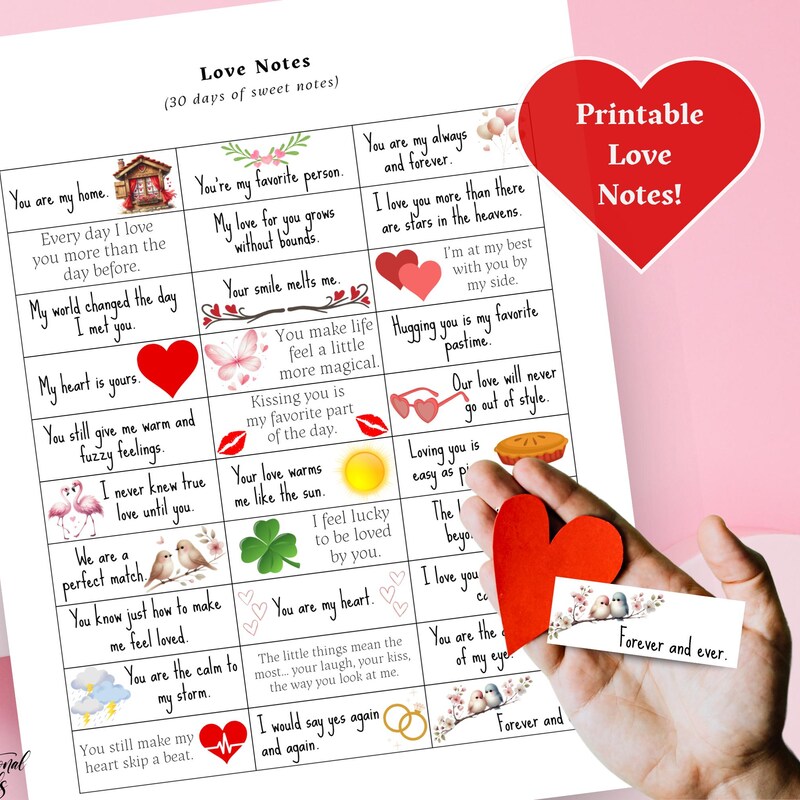 Love Notes
(30 days of sweet notes)
Printable
Love
Notes!
You are my home.
You're my favorite person.
You are my always
and forever.
Every day I love
you more than the
day before.
My love for you grows
without bounds.
I love you more than there
are stars in the heavens.
My world changed the day
I met you.
Your smile melts me.
I'm at my best
with you by
my side.
My heart is yours.
You make life
feel a little
more magical.
Hugging you is my favorite
pastime.
You still give me warm and
fuzzy feelings.
Kissing you is
my favorite part
of the day.
Our love will never
go out of style.
I never knew true
love until you.
Your love warms
me like the sun.
Loving you is
easy as
We are a
perfect match.
I feel lucky
to be loved
by you.
The
You know just how to make
me feel loved.
You are my heart.
I love you
You are the calm to
my storm.
The little things mean the
most... your laugh, your kiss,
the way you look at me.
You are the
of my eye.
You still make my
heart skip a beat.
I would say yes again
and again.
Forever and
Forever and ever.